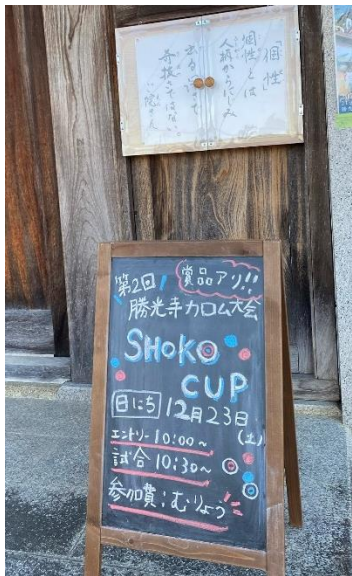 「個性」
個性とは
人柄からにじみ
出るもので
奇抜さではない
賞品アリ!!
第2回
勝光寺カロム大会
SHOKO
CUP
日にち 12月23日
(土)
エントリー10:00~
試合10:30~
参加費:むりょう